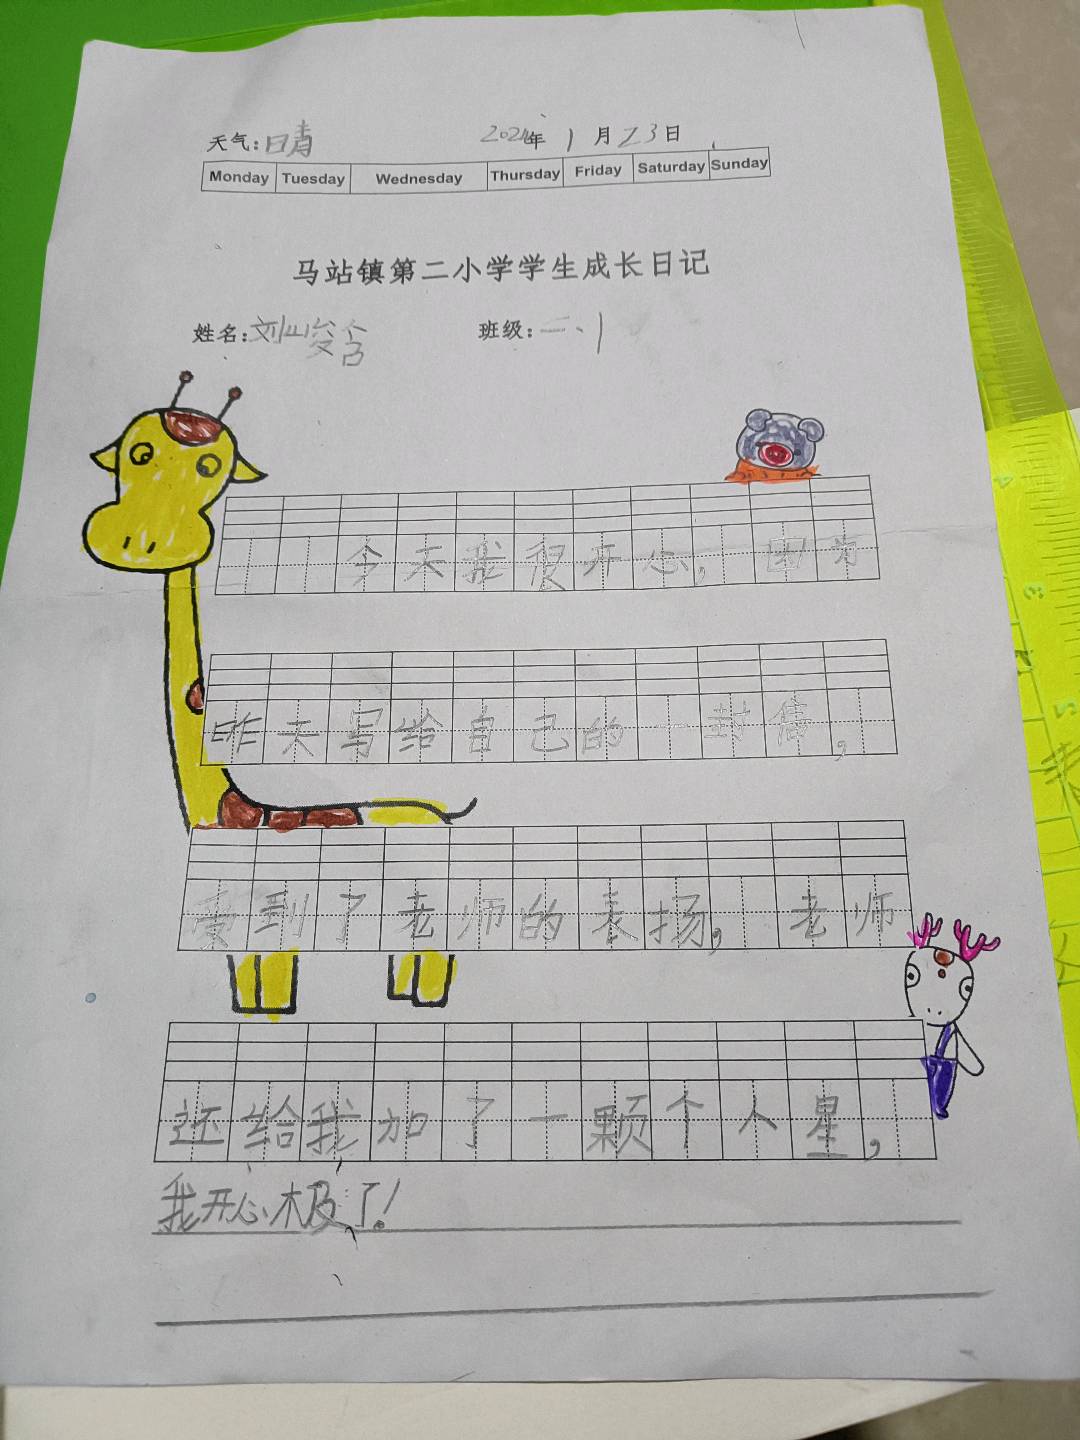 天气:晴 2024年 1月23日
Monday Tuesday Wednesday Thursday Friday Saturday Sunday
马站镇第二小学学生成长日记
姓名:刘峻含 班级:二、1
今天我很开心,因为
昨天写给自己的一封信,
受到了老师的表扬,老师
还给我加了一颗个人星,
我开心极了!